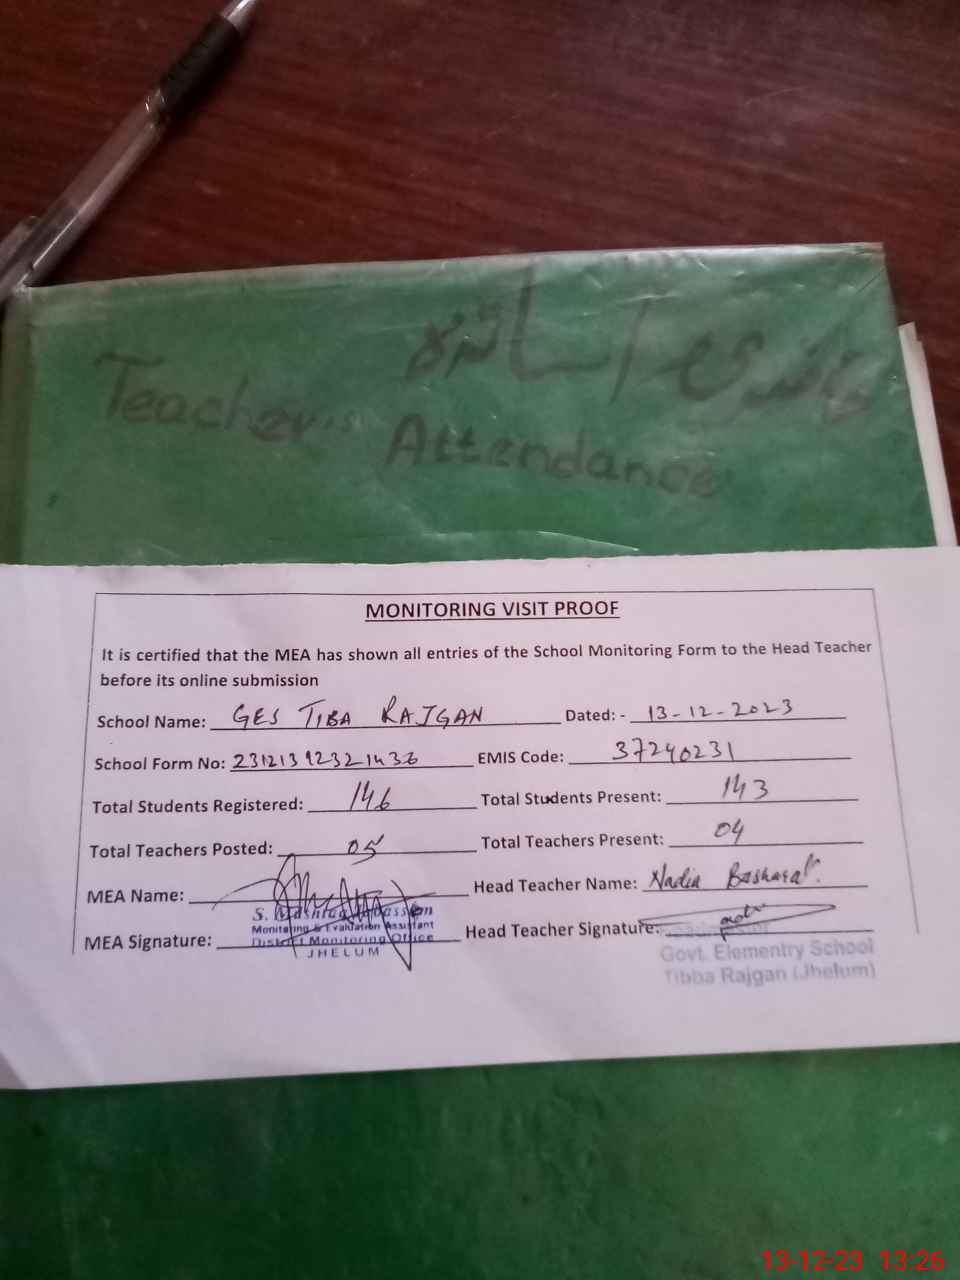 حاضری اساتذہ
Teacher's Attendance
MONITORING VISIT PROOF
It is certified that the MEA has shown all entries of the School Monitoring Form to the Head Teacher
before its online submission
School Name: GES TIBA RAJGAN Dated: - 13-12-2023
School Form No: EMIS Code: 37240231
Total Students Registered: 146 Total Students Present: 143
Total Teachers Posted: 05 Total Teachers Present: 04
MEA Name: Head Teacher Name: Nadia Basharat.
S.
Monitoring & Evaluation Assistant
MEA Signature: District Monitoring Office Head Teacher Signature:
JHELUM
Govt. Elementry School
Tibba Rajgan (Jhelum)
13-12-23 13:26